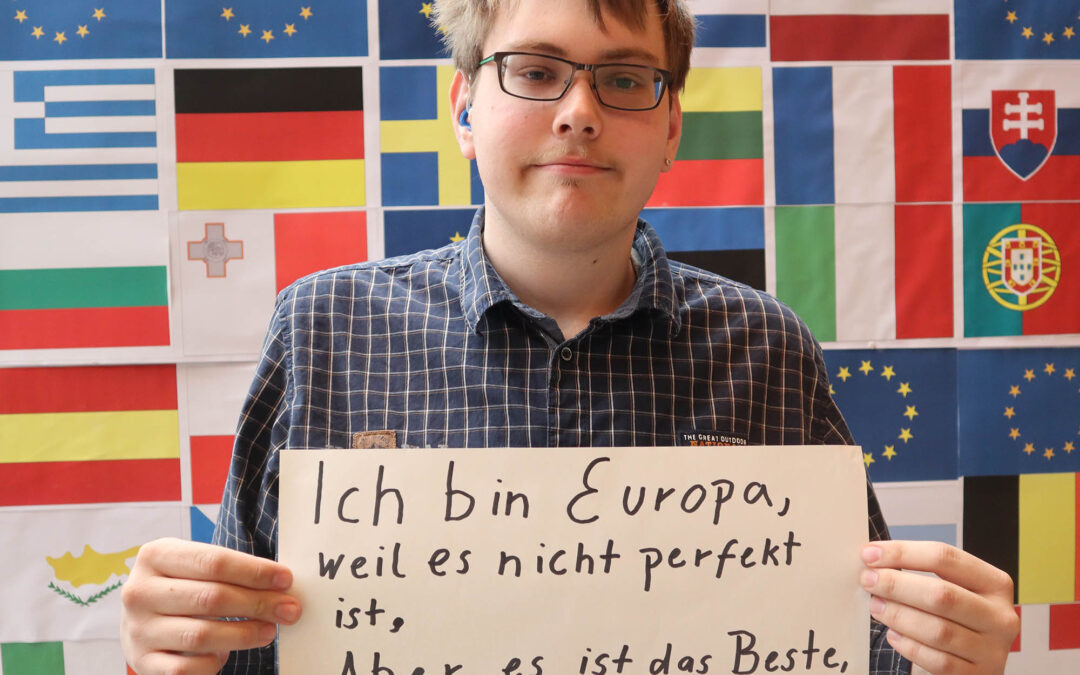 THE GREAT OUTDOOR
Ich bin Europa,
weil es nicht perfekt
ist,
Aber es ist das Beste,